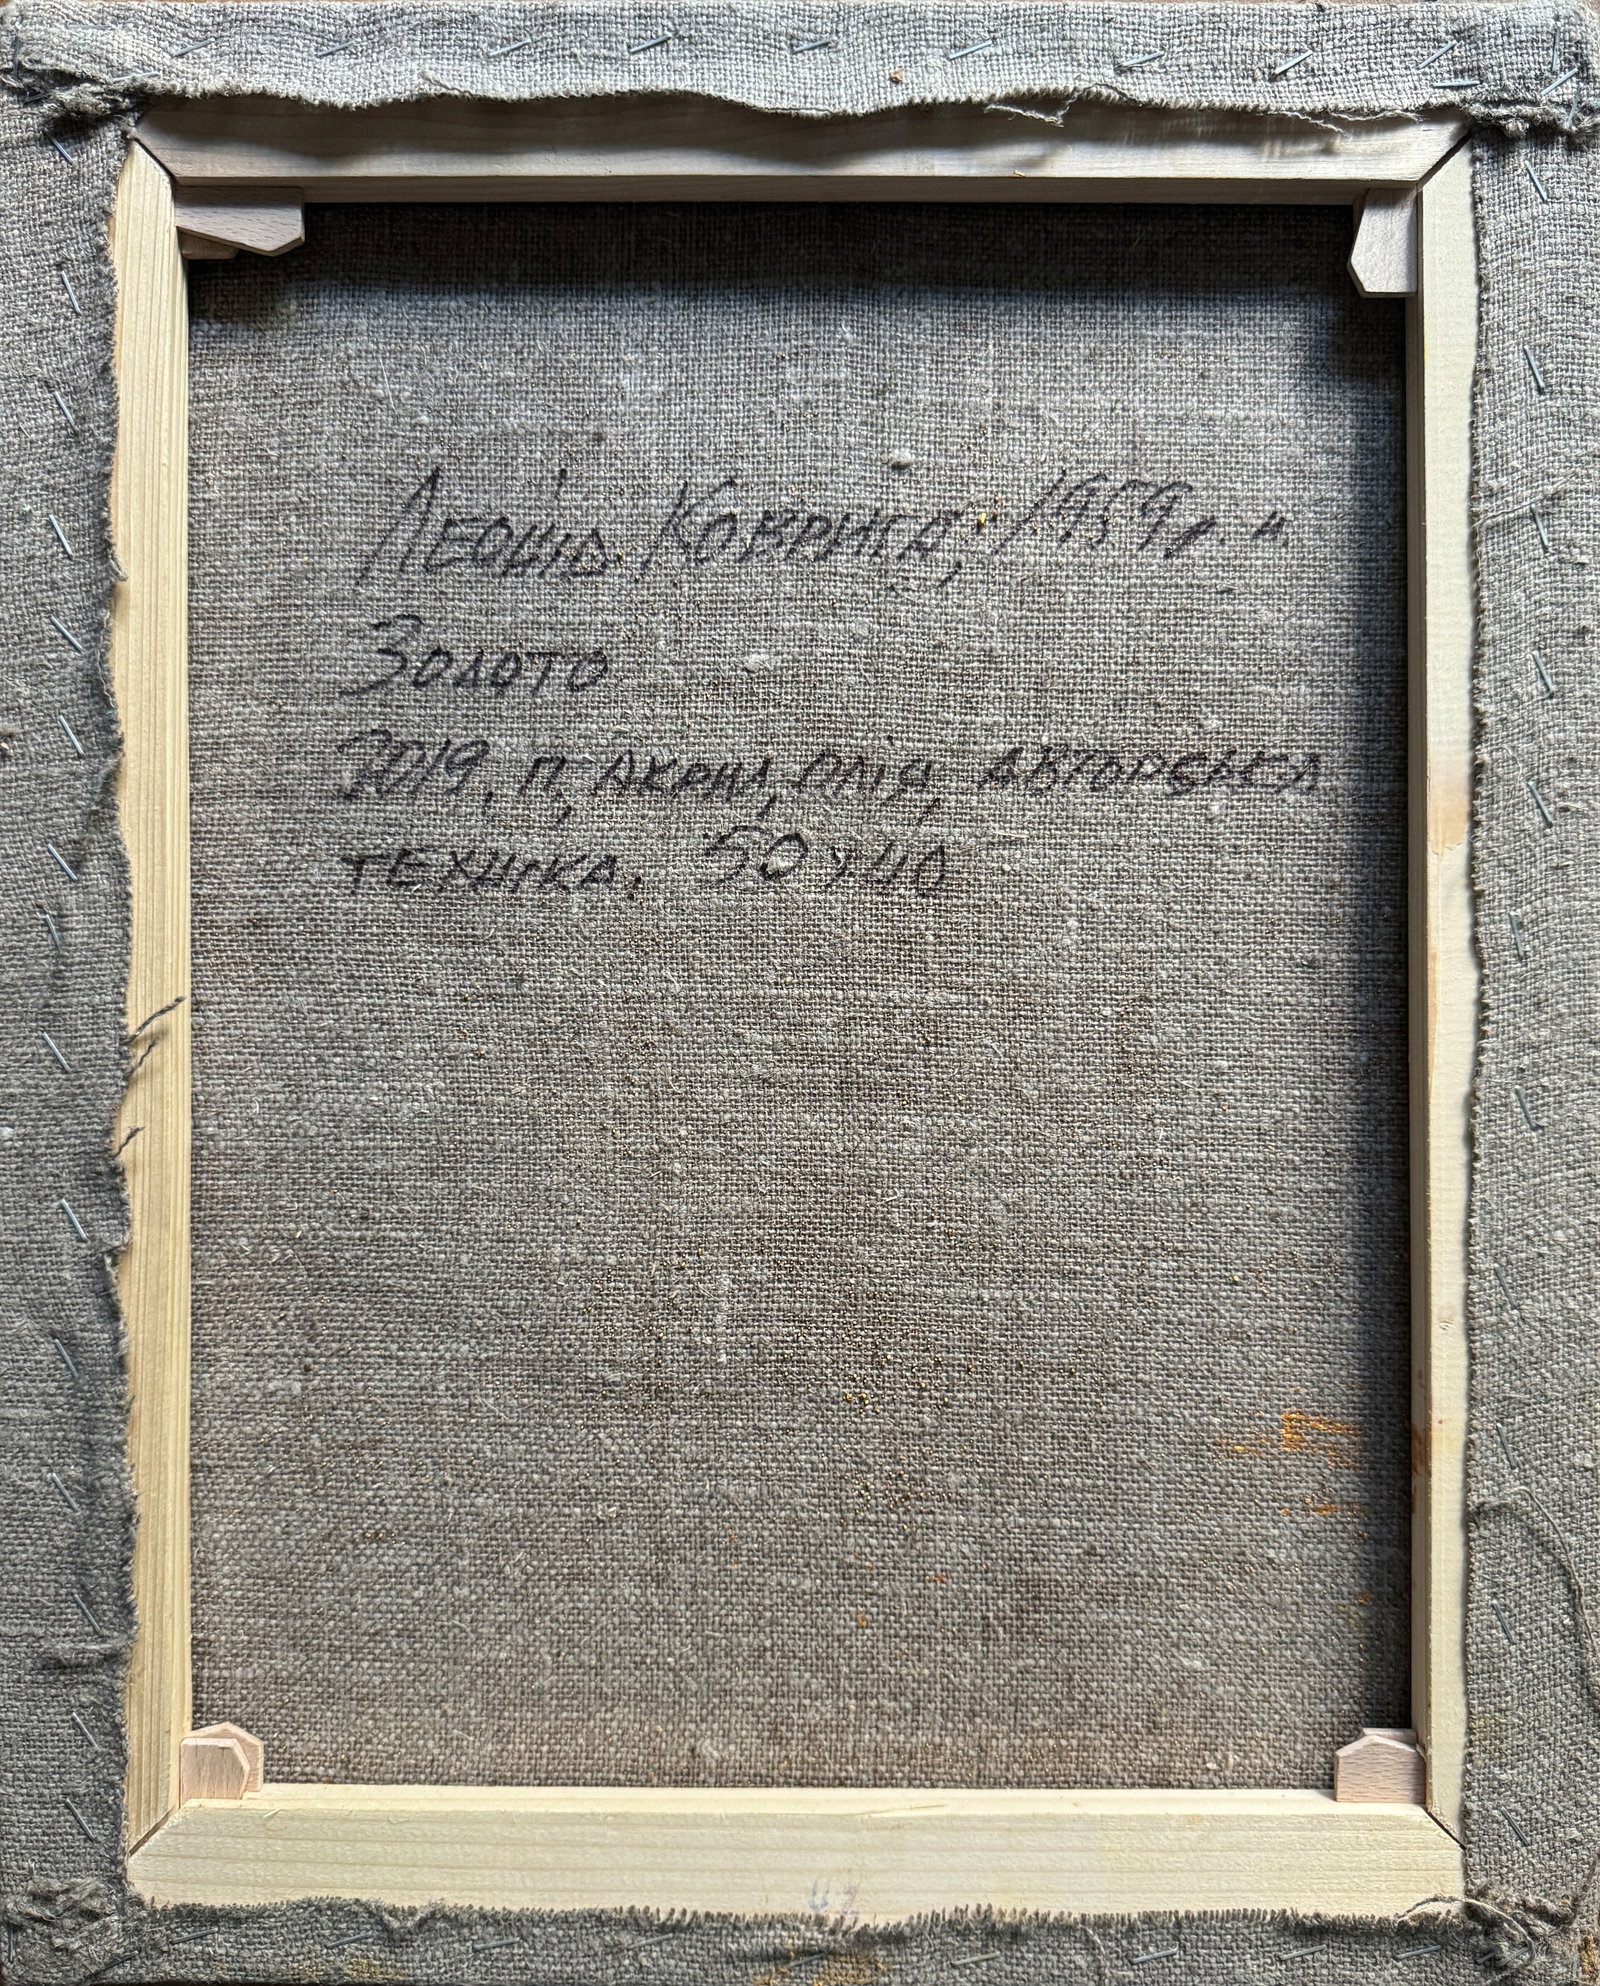 Леонід Коврига, 1959 р. н.
Золото
2019, п, акрил, олія, авторська
техніка. 50х40